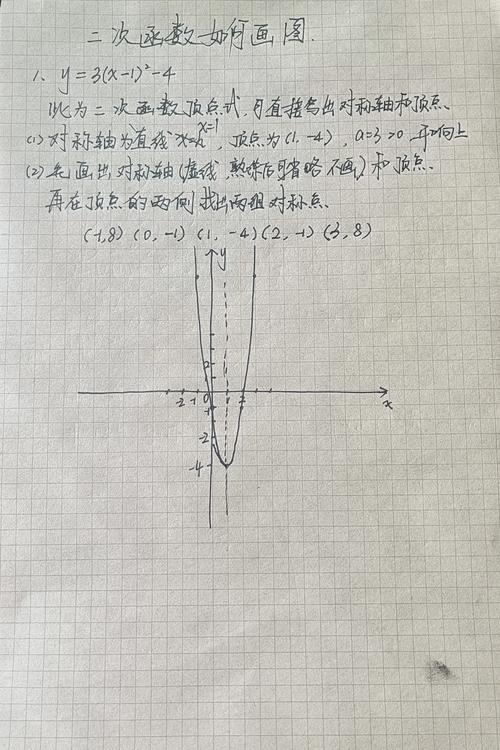 二次函数如何画图.
1、y=3(x-1)²-4
此为二次函数顶点式,可直接写出对称轴和顶点.
(1)对称轴为直线x=1,顶点为(1,-4),a=3>0 开口向上
(2)先画出对称轴(虚线,熟练后可省略不画)和顶点.
再在顶点的两侧找出两组对称点.
(-1,8) (0,-1) (1,-4) (2,-1) (3,8)
y
2
-2 -1 0 2 x
-1
-2
-4